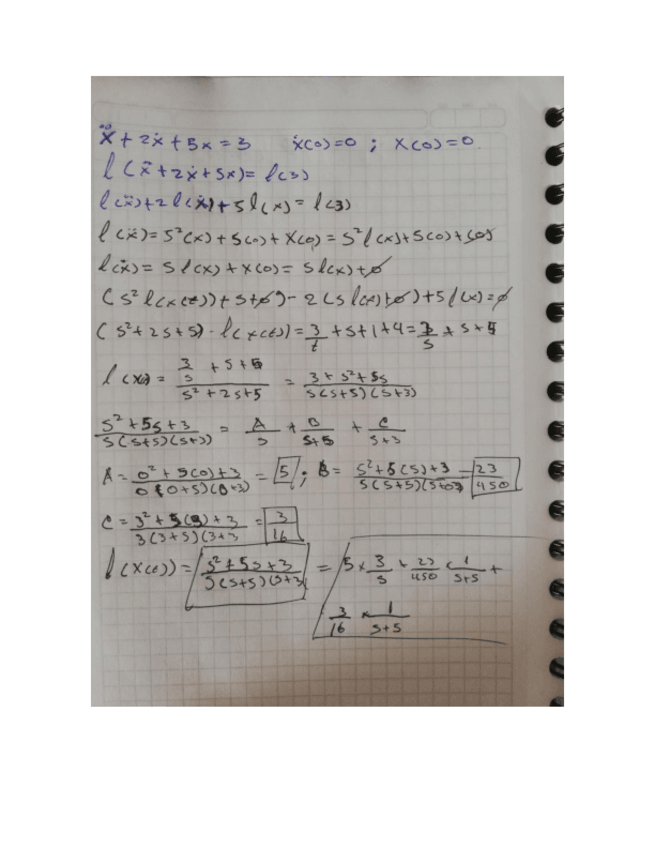 ẍ + 2ẋ + 5x = 3   ẋ(0)=0 ; X(0)=0.
l(ẍ+2ẋ+5x)= l(3)
l(ẍ)+2l(ẋ)+5l(x)= l(3)
l(ẍ)= S²(x)+S(0)+X(0) = S²l(x)+S(0)+(0)
l(ẋ)= S l(x) + X(0)= S l(x)+0
(S²l(x(t))+S+0)- 2(S l(x)+0)+5l(x)=0
(S²+2S+5) · l(x(t))= 3/t +S+1+4= 3/S + S+5
l(x)= (3/S + S+5)/(S²+2S+5) = (3+S²+5S)/(S(S+5)(S+3))
(S²+5S+3)/(S(S+5)(S+3)) = A/S + B/(S+5) + C/(S+3)
A= (0²+5(0)+3)/(0(0+5)(0+3)) = 5 ; B= (5²+5(5)+3)/(5(5+5)(5+03) = 23/450
C= (3²+5(3)+3)/(3(3+5)(3+3 = 3/16
l(X(t))= (S²+5S+3)/(S(S+5)(S+3) = 5 x 3/S + 23/450 x 1/(S+5) +
3/16 x 1/(S+5)